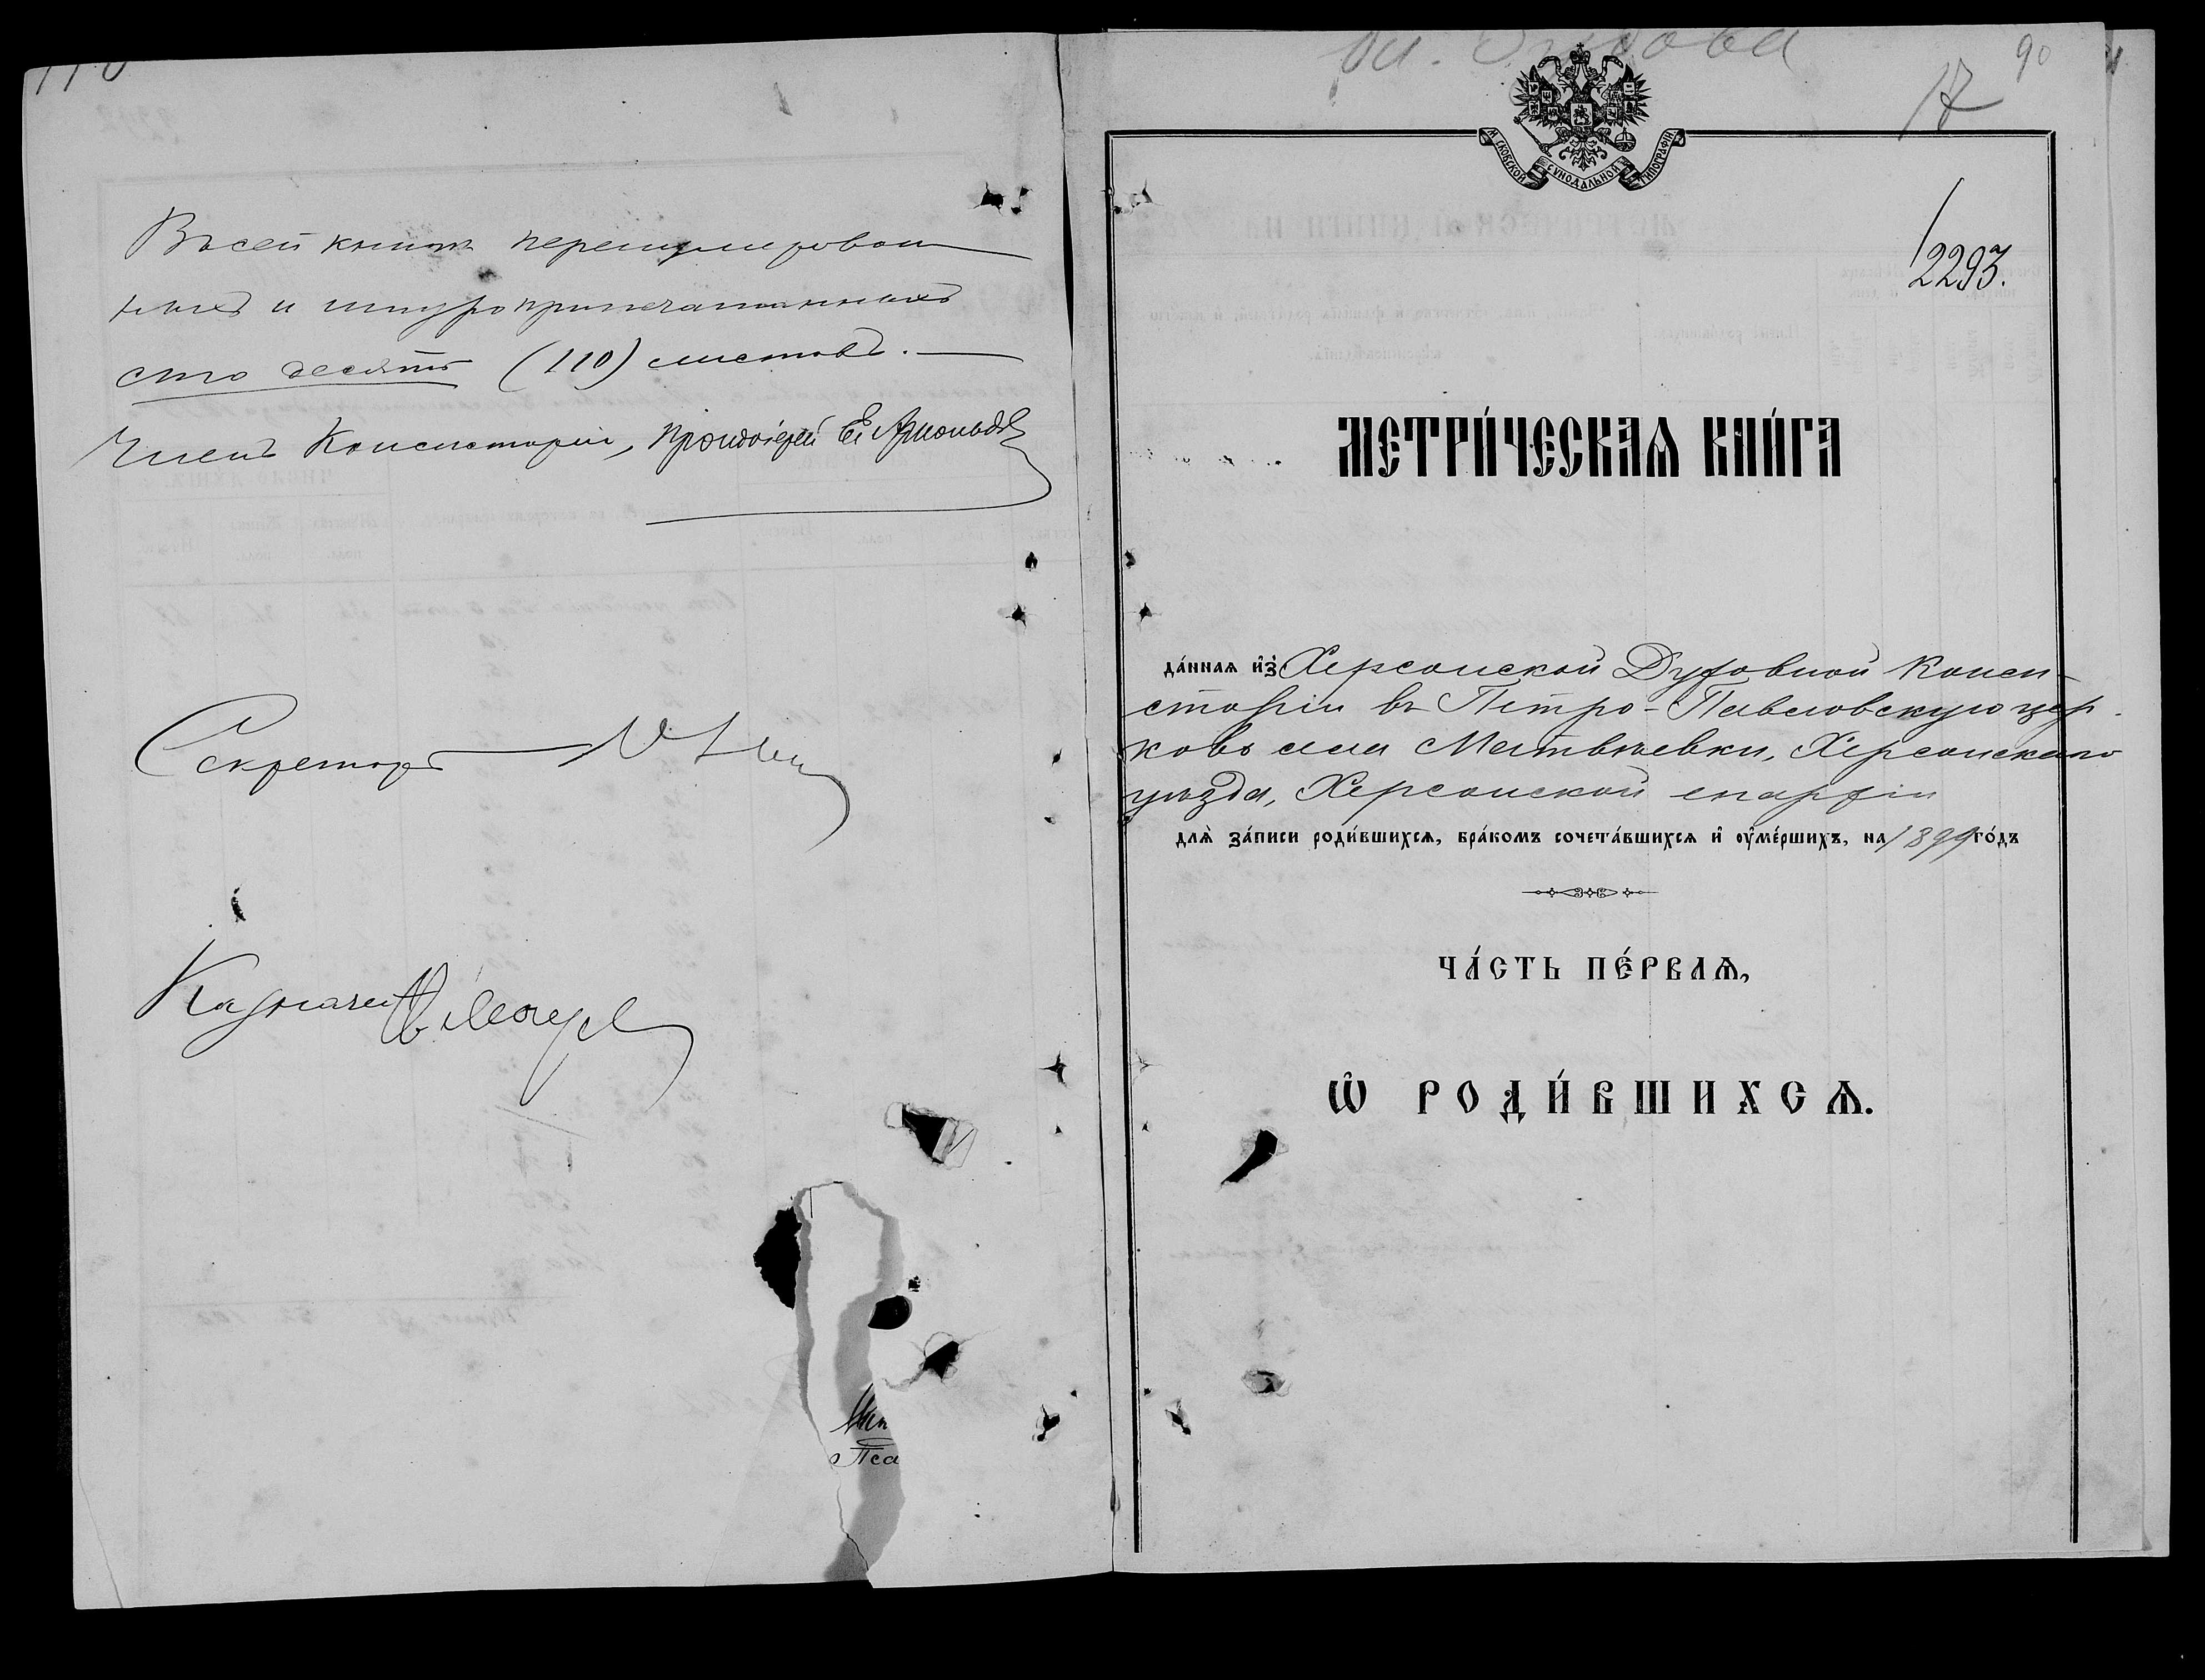 Въ сей книгѣ перенумерован
ныхъ и шнуроприпечатанныхъ
сто десять (110) листовъ.
Членъ Консисторіи, Протоіерей
Секретарь
Казначей
Пса
90
17
МОСКОВСКОЙ СѴНОДАЛЬНОЙ ТИПОГРАФІИ
2293.
МЕТРИ́ЧЕСКАѦ КНИ́ГА
да́ннаѧ и҆з̾ Херсонской Духовной Конси-
сторіи въ Петро-Павловскую цер-
ковь села Матвѣевки, Херсонскаго
уѣзда, Херсонской епархіи
для̀ за́писи роди́вшихсѧ, бра́комъ сочета́вшихсѧ и҆ ᲂу҆ме́ршихъ, на 1899 го́дъ
ЧА́СТЬ ПЕ́РВАѦ,
Ѡ҆ РОДИ́ВШИХСѦ.